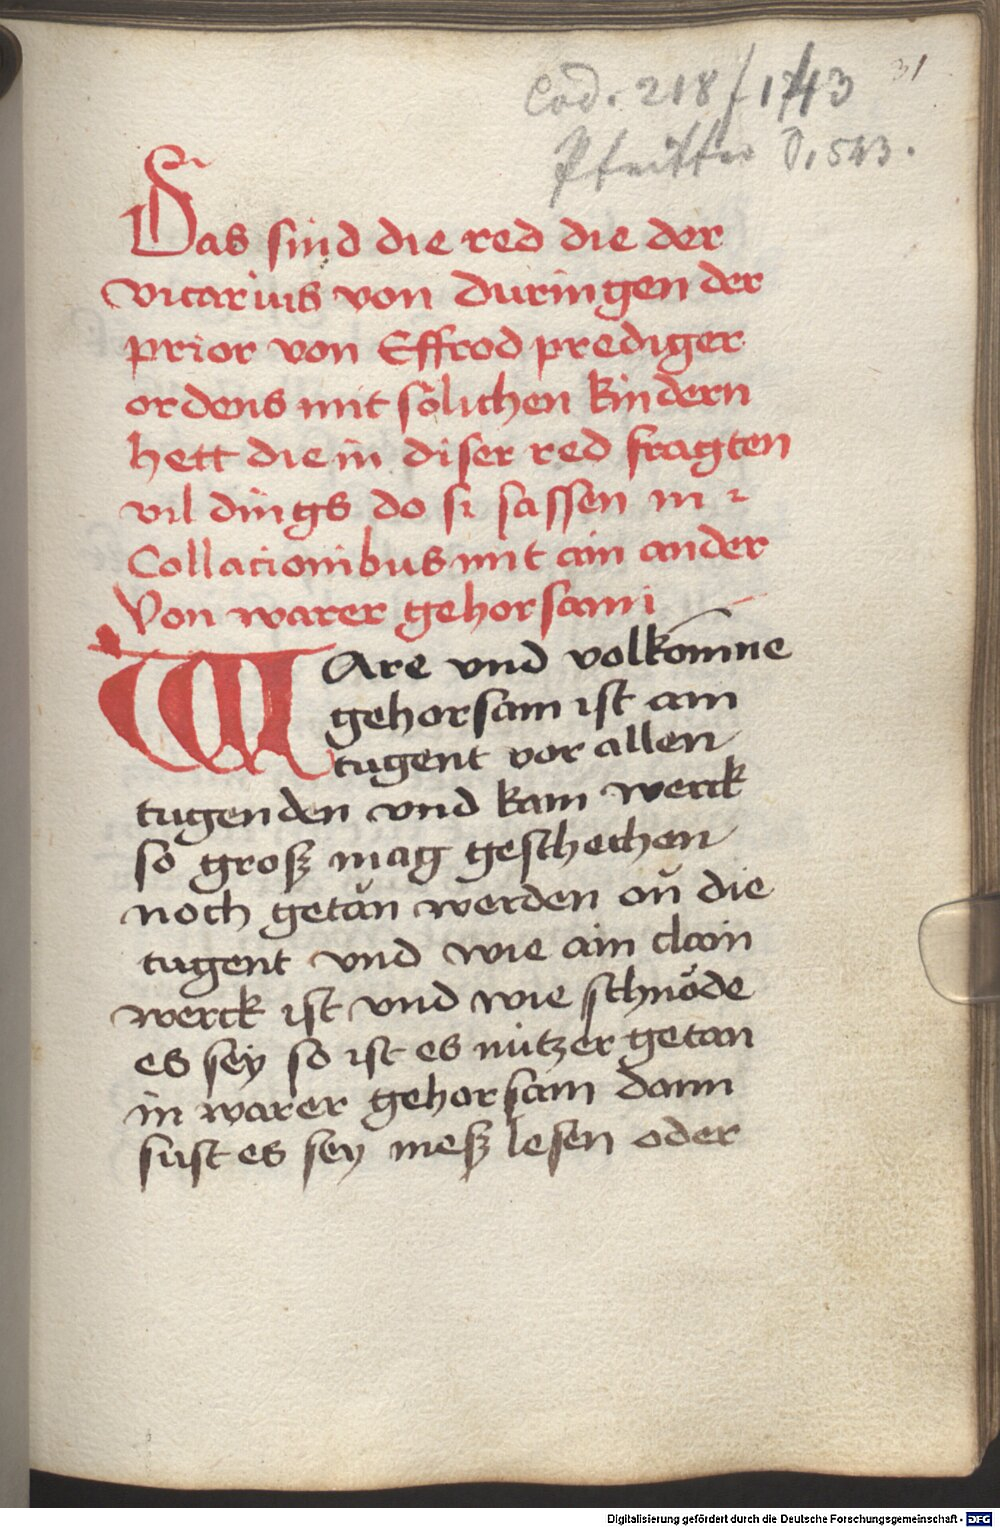 31
Cod. 218 / 1743
Pfeiffer S. 543.
Das sind die red die der
vicarius von duringen der
prior von Effrod prediger
ordens mit sölichen kindern
hett die in diser red fragten
vil dings do si sassen in
Collacionibus mit ain ander
Von warer gehorsami
WAre vnd volkom̄ne
gehorsam ist ain
tugent vor allen
tugenden vnd kain werck
so groß mag geschechen
noch getǎn werden on̆ die
tugent vnd wie ain clain
werck ist vnd wie schnöde
es sey so ist es nützer getan
in warer gehorsam dann
sust es sey meß lesen oder
Digitalisierung gefördert durch die Deutsche Forschungsgemeinschaft - DFG